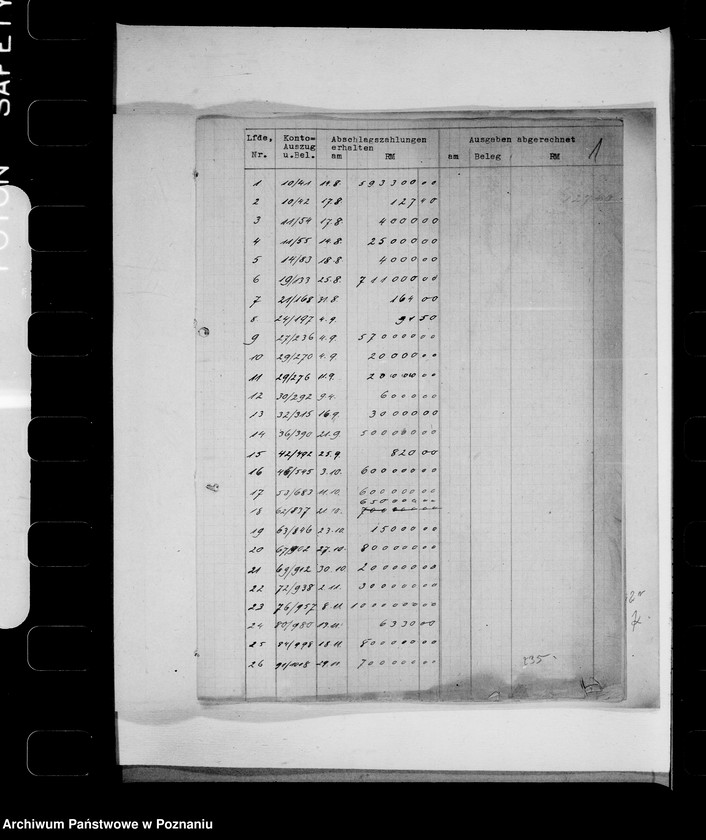 SAFETY
FOTON
Lfde, Konto= Abschlagszahlungen Ausgaben abgerechnet 1
Auszug erhalten
Nr. u.Bel. am RM am Beleg RM
1 10/41 14.8. 5933000
2 10/42 17.8 12740
3 11/54 17.8 400000
4 11/55 14.8. 2500000
5 14/83 18.8 400000
6 19/133 25.8. 71100000
7 21/168 31.8. 16400
8 24/197 4.9. 9150
9 27/236 4.9. 57000000
10 29/270 4.9. 2000000
11 29/276 11.9. 2000000
12 30/292 9.9. 600000
13 32/315 16.9. 3000000
14 36/390 21.9. 50000000
15 42/492 25.9. 82000
16 46/545 3.10. 60000000
17 53/683 11.10. 60000000
65000000
18 62/837 21.10. 70000000
19 63/846 23.10. 1500000
20 67/902 27.10. 80000000
21 69/912 30.10. 20000000
22 72/938 2.11. 30000000
23 76/957 8.11. 100000000
24 80/980 13.11. 633000
25 84/998 18.11. 80000000
26 91/1018 29.11. 70000000
235.
Archiwum Państwowe w Poznaniu